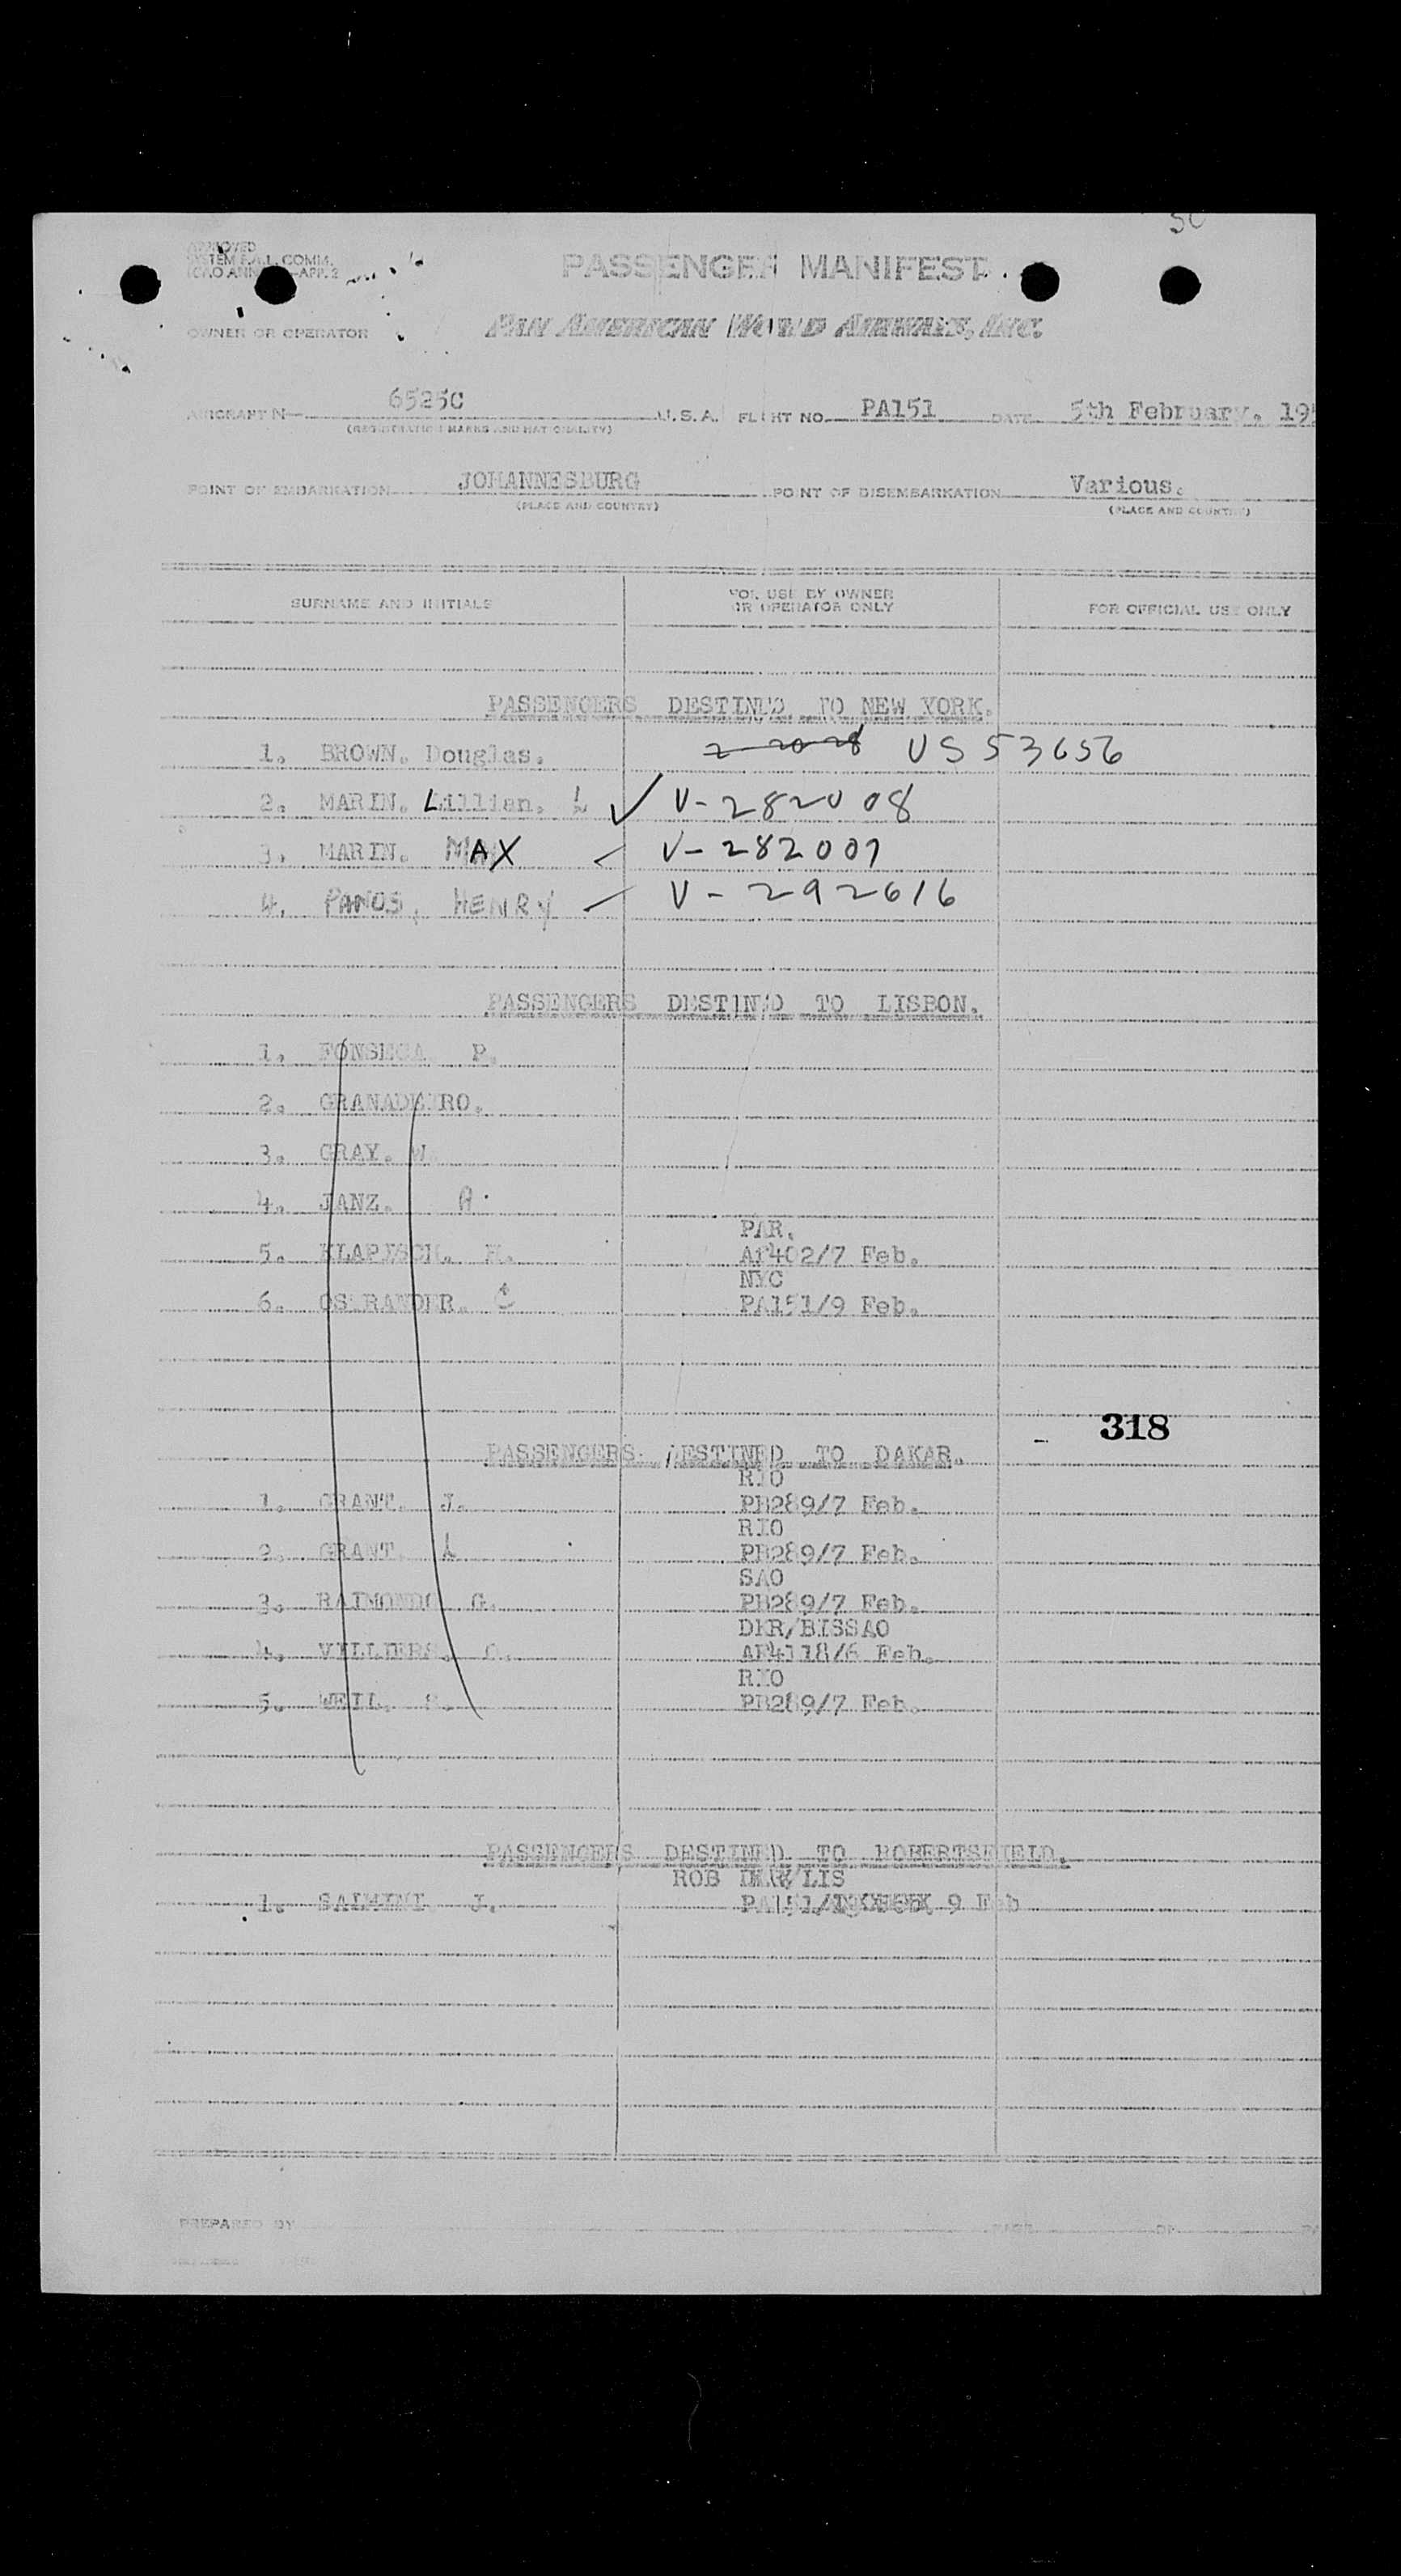 50
APPROVED
SYSTEM F.A.L. COMM.
ICAO ANN —APP. 2
PASSENGER MANIFEST
OWNER OR OPERATOR PAN AMERICAN WORLD AIRWAYS, INC.
AIRCRAFT N— 6525C U.S.A. FLIGHT NO. PA151 DATE 5th February, 195
(REGISTRATION MARKS AND NATIONALITY)
POINT OF EMBARKATION JOHANNESBURG POINT OF DISEMBARKATION Various.
(PLACE AND COUNTRY) (PLACE AND COUNTRY)
SURNAME AND INITIALS FOR USE BY OWNER OR OPERATOR ONLY FOR OFFICIAL USE ONLY
PASSENGERS DESTINED TO NEW YORK.
1. BROWN. Douglas. US 53656
2. MARIN. Lillian. L ✓ V-282008
3. MARIN. MAX V-282007
4. PANOS, HENRY V-292616
PASSENGERS DESTINED TO LISBON.
1. FONSECA P.
2. GRANADEIRO.
3. GRAY. W.
4. JANZ. A.
PAR.
5. H. AF402/7 Feb.
NYC
6. OSTRANDER. C PA151/9 Feb.
318
PASSENGERS DESTINED TO DAKAR.
RIO
1. GRANT. J. PB289/7 Feb.
RIO
2. GRANT. L PB289/7 Feb.
SAO
3. RAIMONDO G. PB289/7 Feb.
DKR/BISSAO
4. VILLIERS. C. AF4118/6 Feb.
RIO
5. WEIL. PB289/7 Feb.
PASSENGERS DESTINED TO ROBERTSFIELD.
ROB DKR/LIS
1. SALMINI J. PA151/ 9 Feb
PREPARED BY PAGE OF PA